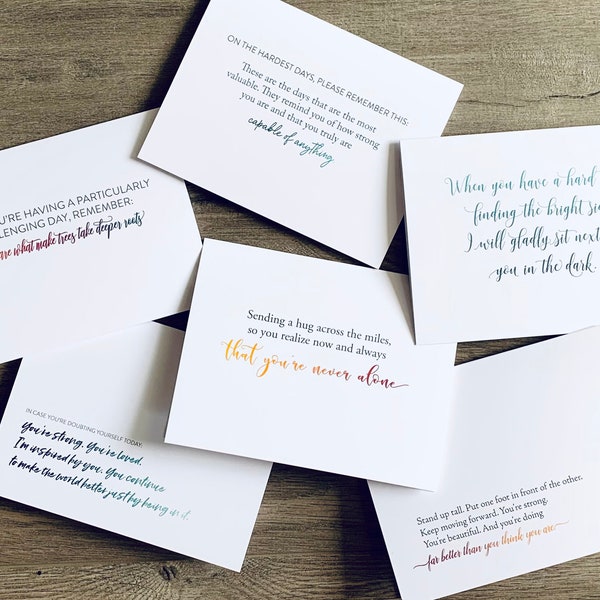 ON THE HARDEST DAYS, PLEASE REMEMBER THIS:
These are the days that are the most
valuable. They remind you of how strong
you are and that you truly are
capable of anything
'RE HAVING A PARTICULARLY
LENGING DAY, REMEMBER:
are what make trees take deeper roots
When you have a hard
finding the bright
I will gladly sit next
you in the dark.
Sending a hug across the miles,
so you realize now and always
that you're never alone
IN CASE YOU'RE DOUBTING YOURSELF TODAY:
You're strong. You're loved.
I'm inspired by you. You continue
to make the world better just by being in it.
Stand up tall. Put one foot in front of the other.
Keep moving forward. You're strong.
You're beautiful. And you're doing
far better than you think you are